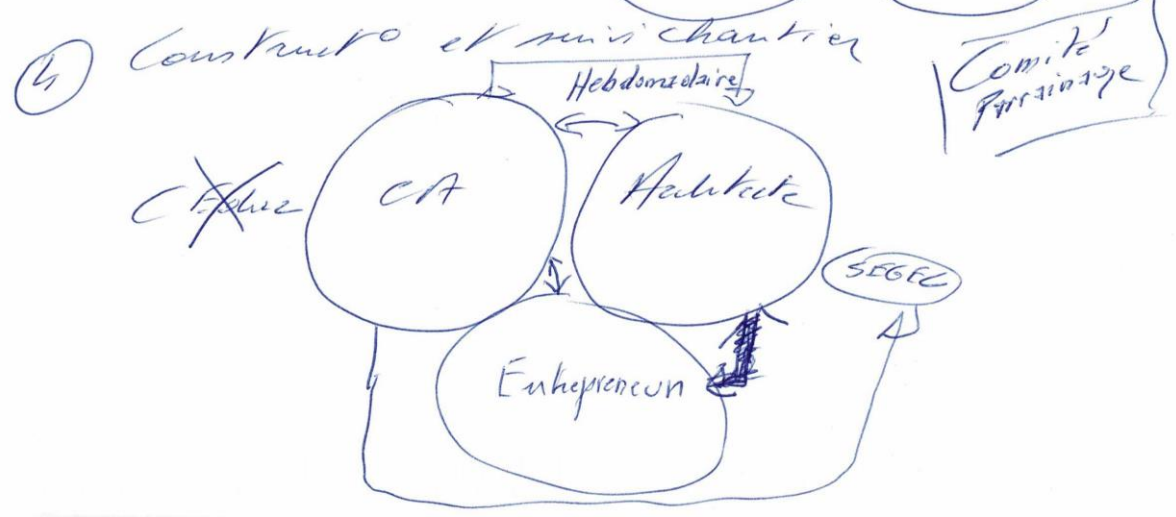 ④ Construct° et suivi chantier
Comité
Parrainage
Hebdomadaire
CA
Architecte
SEGEC
Entrepreneur